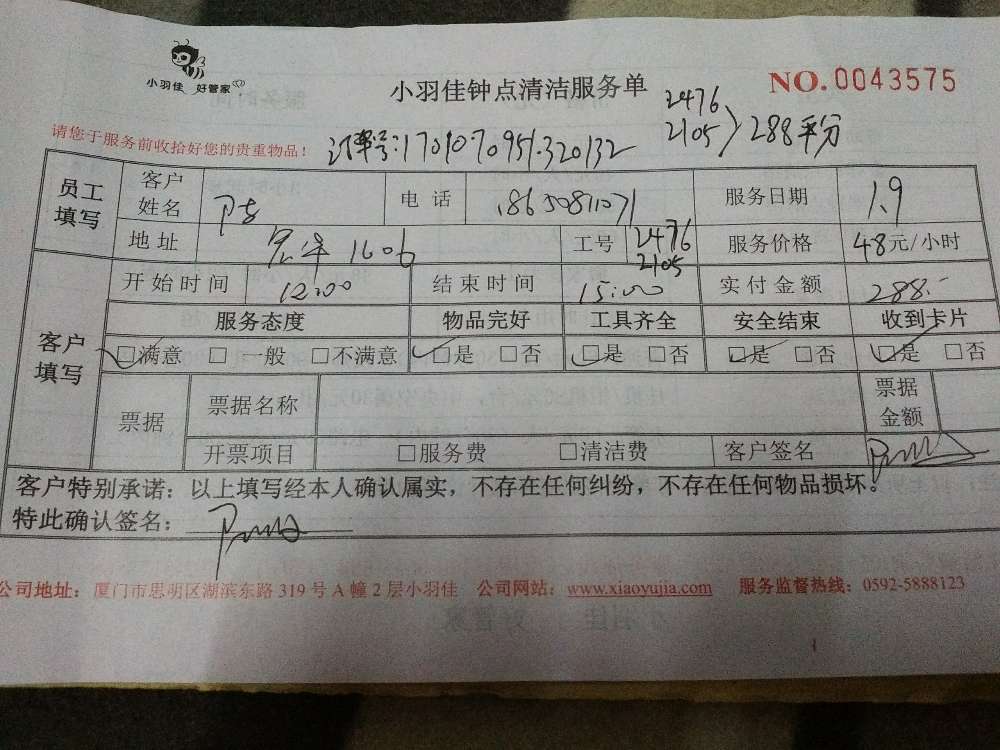 小羽佳 好管家
小羽佳钟点清洁服务单
NO.0043575
请您于服务前收拾好您的贵重物品！
订单号:1701070951320132
2476
2105 〉288平分
员工填写 客户姓名 电话 服务日期 1.9
地址 1606 工号 2476 2105 服务价格 48元/小时
客户填写 开始时间 12:00 结束时间 15:00 实付金额 288.-
服务态度 物品完好 工具齐全 安全结束 收到卡片
☑满意 □一般 □不满意 ☑是 □否 ☑是 □否 ☑是 □否 ☑是 □否
票据 票据名称 票据金额
开票项目 □服务费 □清洁费 客户签名
客户特别承诺：以上填写经本人确认属实，不存在任何纠纷，不存在任何物品损坏。
特此确认签名：
公司地址：厦门市思明区湖滨东路 319 号 A 幢 2 层小羽佳 公司网站：www.xiaoyujia.com 服务监督热线：0592-5888123